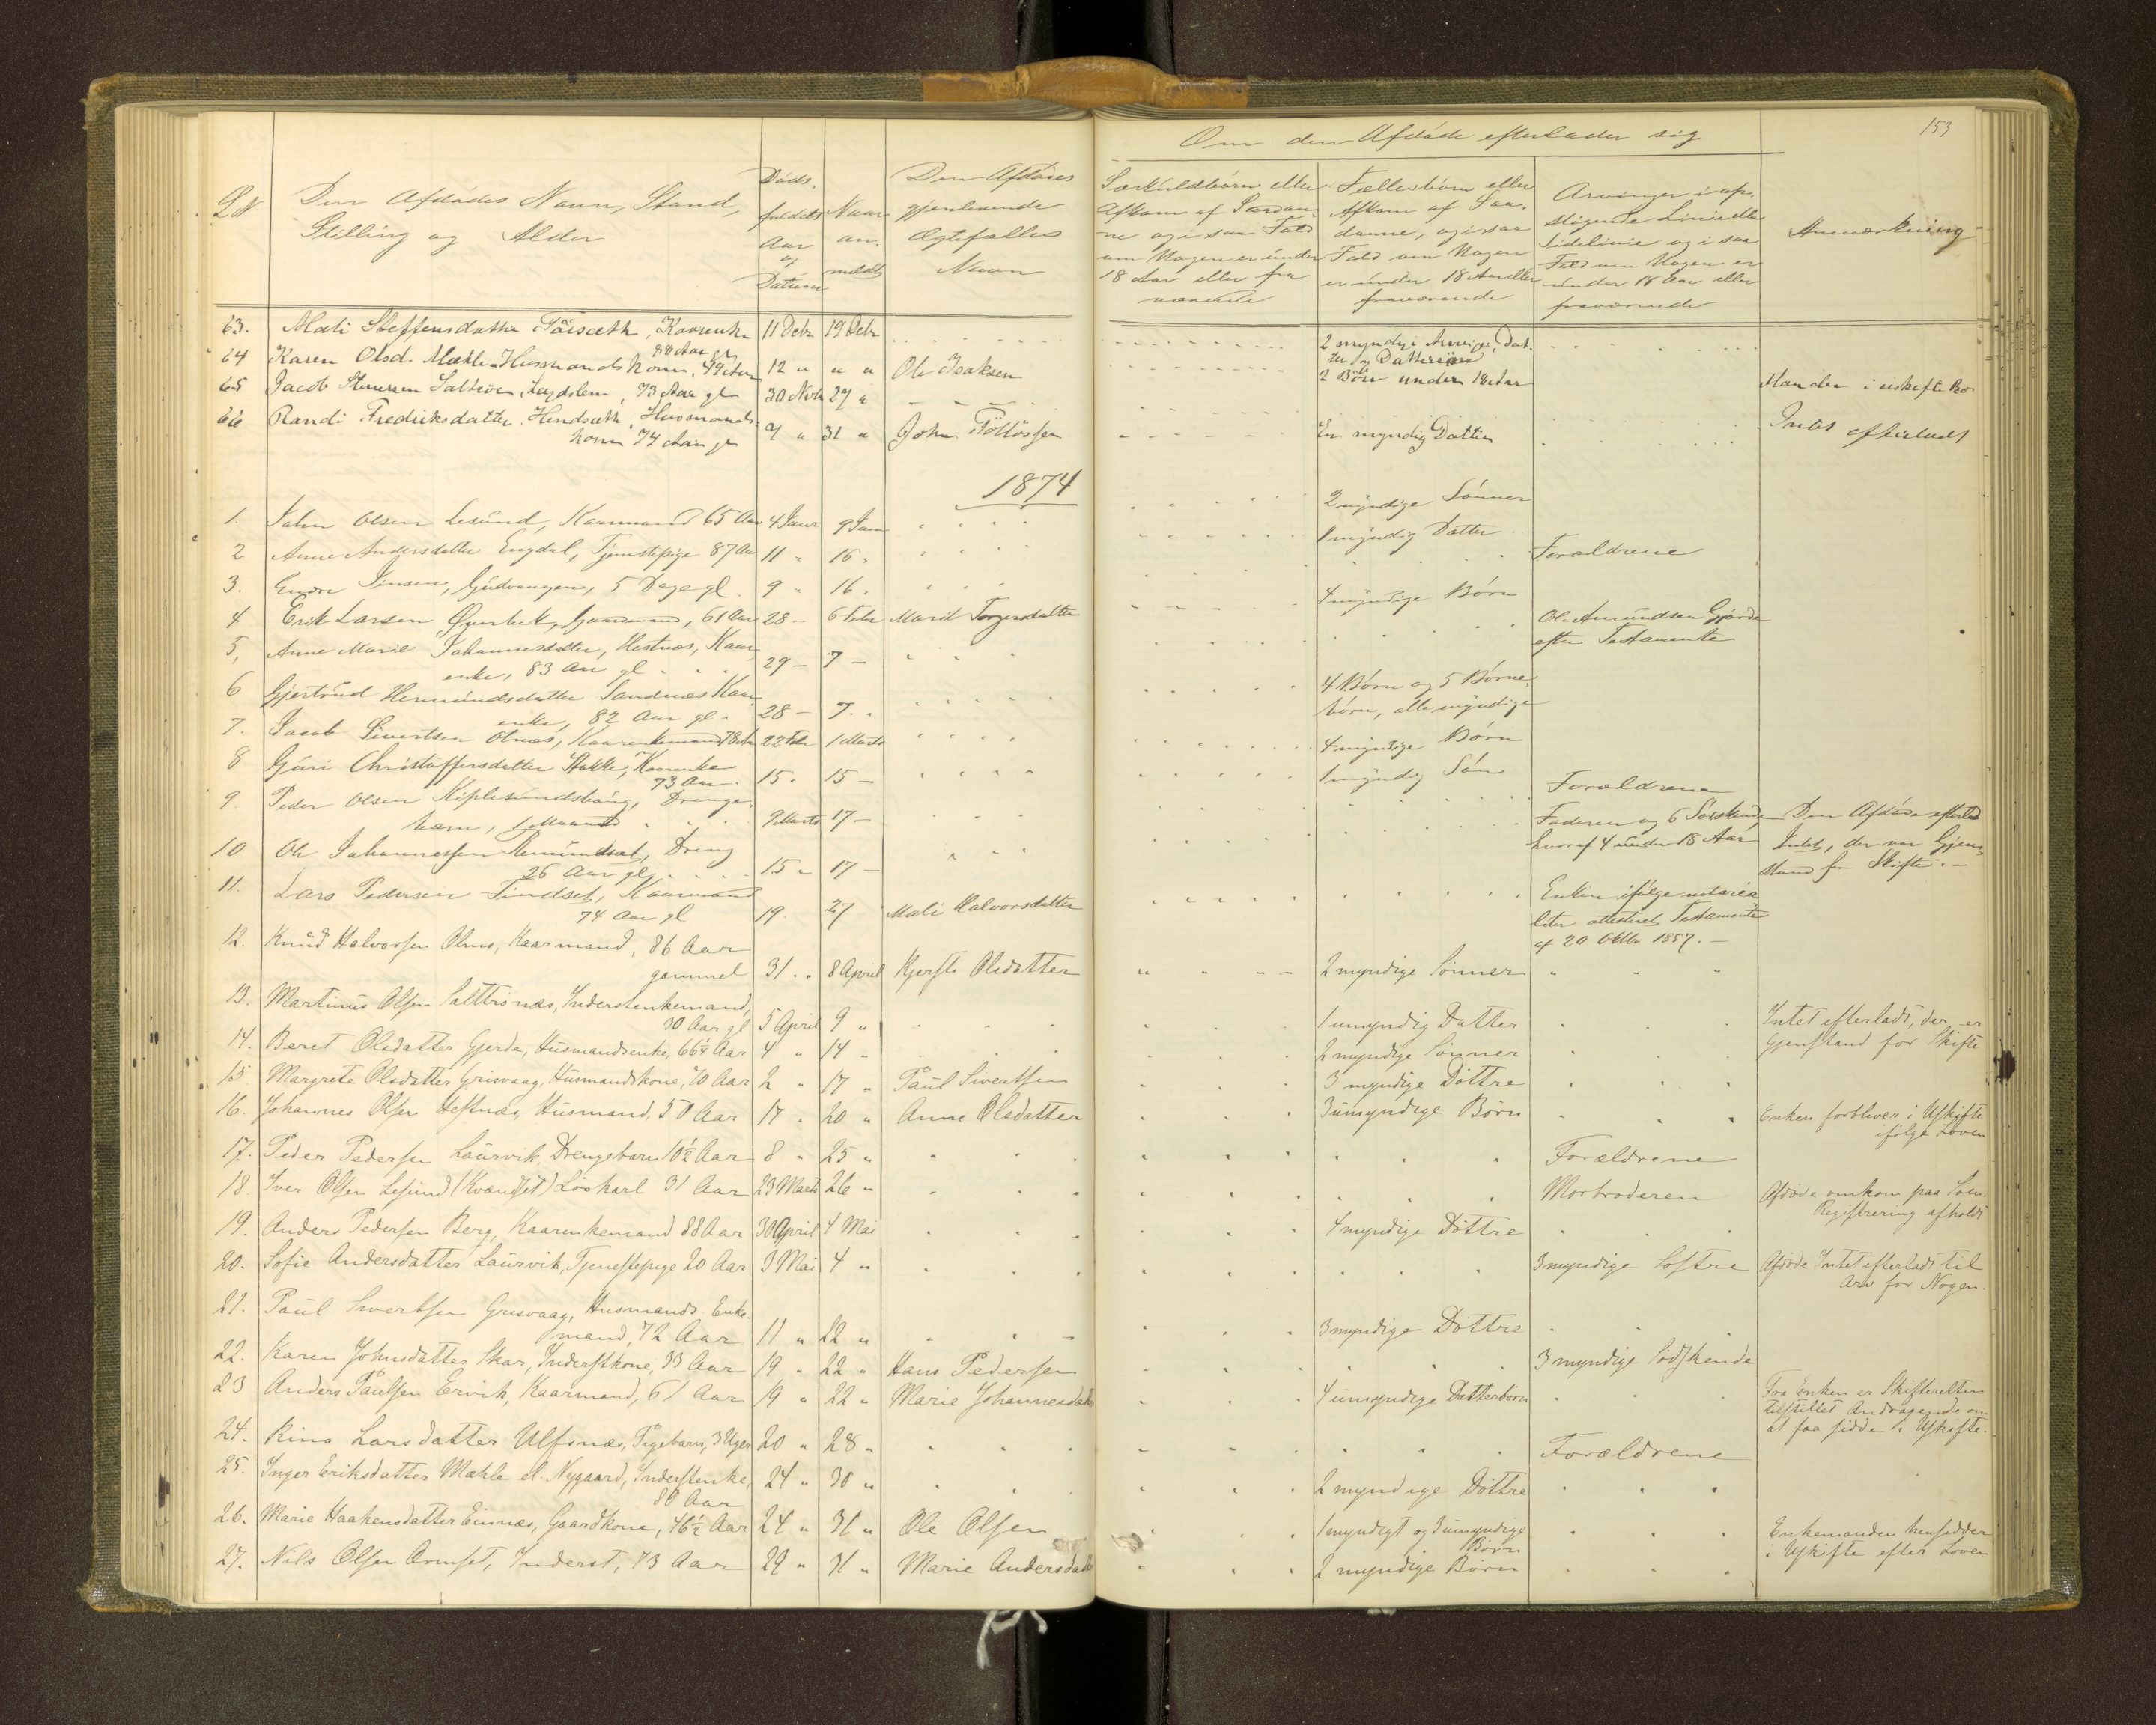 153
Om den Afdöde efterlader sig
LN
Den Afdödes Navn, Stand,
Stilling og Alder
Döds-
faldets
Aar
og
Datum
Naar
an-
meldt
Den Afdödes
gjenlevende
Ægtefælles
Navn
Særkuldbörn eller
Afkom af Saadan-
ne og i saa Fald
om Nogen er under
18 Aar eller fra
værende
Fællesbörn eller
Afkom af Saa-
danne, og i saa
Fald om Nogen
er under 18 Aar eller
fraværende
Arvinger i op-
stigende Linie eller
Sidelinie og i saa
Fald om Nogen er
under 18 Aar eller
fraværende
Anmærkning
63. Mali Steffensdatter 11 Decbr 19 Decbr 2 myndige Arvinger, Dat-
88 Aar gl ter og Dattersön
64 Karen Olsd. Mæhle Husmands kone, 49 Aar 12 " " " Ole Isaksen 2 Börn under 18 Aar Manden i uskiftet Bo
65 Jacob 73 Aar gl 30 Novb 29 "
66 Randi Fredriksdatter Hendsæth, Husmands- 7 " 31 " John En myndig Datter Intet efterladt
kone 74 Aar gl
1874
1. John Olsen Lesund, Kaarmand 65 Aar 4 Janr 9 Janr 2 myndige Sönner
2 Anne Andersdatter Engdal, Tjenestepige 87 Aar 11 " 16 " 1 myndig Datter
3. Jensen, Gudvangen, 5 Dage gl. 9 " 16 " Forældrene
4 Erik Larsen Gaardmand, 61 Aar 28 - 6 Febr Marit Torgersdatter 4 myndige Börn
5, Anne Marie Johannesdatter, Hestnæs, Kaar- 29 - 7 - Ole Amundsen Gjerde
enke, 83 Aar gl efter Testamente
6 Gjertrud Sandnæs Kaar- 28 - 7 . 4 Börn og 5 Börne-
enke, 82 Aar gl börn, alle myndige
7. Jacob Sivertsen Otnæs, Kaarenkemand 78 Aar 22 Febr 1 Marts 4 myndige Börn
8 Guri Christoffersdatter Stokke, Kaarenke 15 . 15 - 1 myndig Sön
73 Aar.
9. Peder Olsen Kiplesundsbaug, Drenge- 9 Marts 17 - Forældrene
barn, 1 Maaned
10 Ole Johannessen Remundset, Dreng 15 - 17 - Faderen og 6 Söskende Den Afdöde efterlod
26 Aar gl hvoraf 4 under 18 Aar Intet, der var Gjen-
stand for Skifte. -
11. Lars Pedersen Tindset, Kaarmand 19. 27 Mali Halvorsdatter Enken ifölge notaria-
74 Aar gl liter attesteret Testamente
af 20 Oktbr 1857. -
12. Knud Halvorsen Olmo, Kaarmand, 86 Aar
gammel 31 . " 8 April Kjersti Olsdatter 2 myndige Sönner
13. Martinus Olsen Salthrönæs, Inderstenkemand,
30 Aar gl 5 April 9 " 1 umyndig Datter Intet efterladt, der er
Gjenstand for Skifte
14. Beret Olsdatter Gjerde, Husmandsenke, 66¼ Aar 4 " 14 " 2 myndige Sönner
15. Margrete Olsdatter Grisvaag, Husmandskone, 70 Aar 2 " 17 " Paul Sivertsen 3 myndige Döttre
16. Johannes Olsen Hestnæs, Husmand, 50 Aar 17 " 20 " Anne Olsdatter 3 umyndige Börn Enken forbliver i Uskifte
ifölge Loven
17. Peder Pedersen Laurvik, Drengebarn 10½ Aar 8 " 25 " Forældrene
18. Iver Olsen Lesund (Kvandset) Löskarl 31 Aar 23 Marts 26 " Morbroderen Afdöde omkom paa Söen.
Registrering afholdt
19. Anders Pedersen Berg, Kaarenkemand 88 Aar 30 April 4 Mai 4 myndige Döttre
20. Sofie Andersdatter Laurvik, Tjenestepige 20 Aar 3 Mai 4 " 3 myndige Söstre Afdöde Intet efterladt til
Arv for Nogen.
21. Paul Sivertsen Grisvaag, Husmands Enke-
mand, 72 Aar 11 " 22 " 3 myndige Döttre
22. Karen Johnsdatter Skar, Inderstkone, 33 Aar 19 " 22 " Hans Pedersen 3 myndige Södskende
23 Anders Paulsen Ervik, Kaarmand, 61 Aar 19 " 22 " Marie Johannesdatter 4 umyndige Datterbörn Fra Enken er Skifteretten
tilstillet Andragende om
at faa sidde i Uskifte.
24. Rina Larsdatter Ulfsnæs, Pigebarn, 3 Uger 20 " 28 " Forældrene
25. Inger Eriksdatter Mæhle el. Nygaard, Inderstenke, 24 " 30 " 2 myndige Döttre
80 Aar
26. Marie Haakensdatter Einnæs, Gaardkone, 46½ Aar 24 " 31 " Ole Olsen 1 myndigt og 3 umyndige Enkemanden hensidder
Börn i Uskifte efter Loven
27. Nils Olsen Inderst, 73 Aar 29 " 31 " Marie Andersdatter 2 myndige Börn